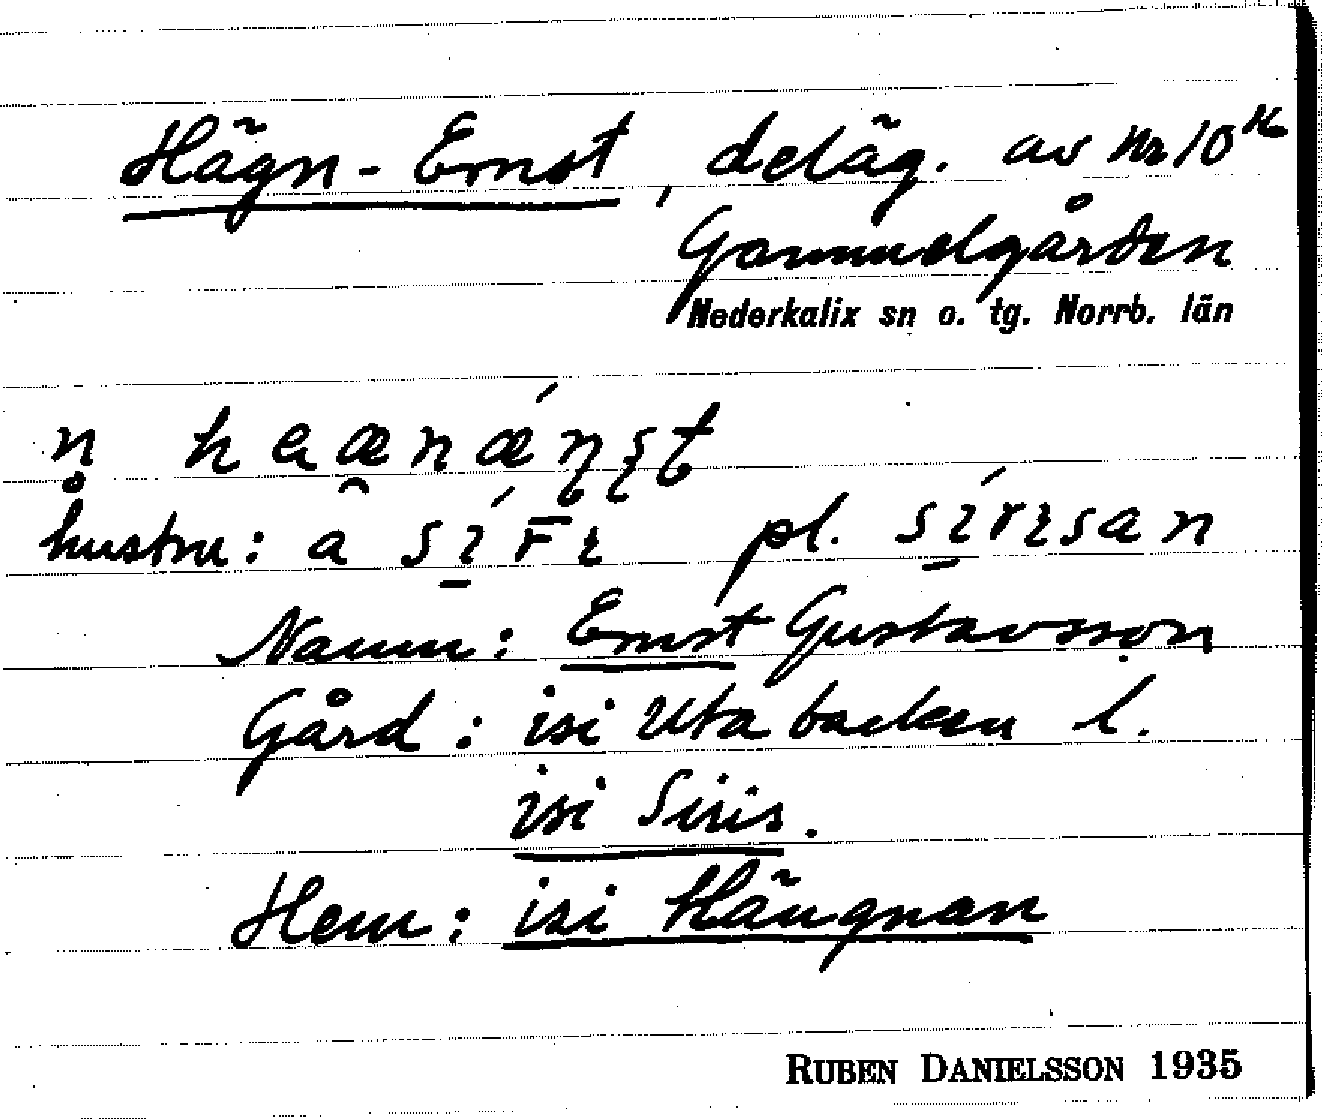 Hägn-Ernst, deläg. av Nr 10
Gammelgården
Nederkalix sn o. tg. Norrb. län
hustru: pl.
Namn: Ernst Gustavsson
Gård: isi Utabacken l.
isi Siris.
Hem: isi Hängnan
RUBEN DANIELSSON 1935